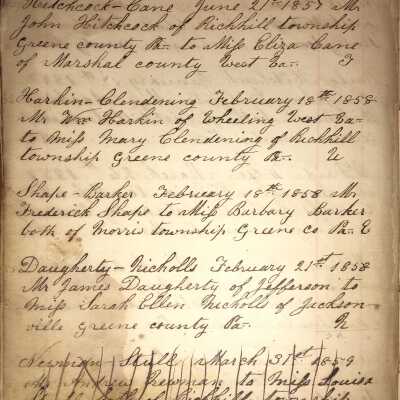 Hitchcock-Cane June 21st 1857 Mr
John Hitchcock of Richhill township
Greene county Pa- to Miss Eliza Cane
of Marshal county West Va-
Harkin-Clendening February 18th 1858
Mr Wm Harkin of Wheeling West Va-
to Miss Mary Clendening of Richhill
township Greene county Pa-
Shape-Barker February 18th 1858 Mr
Frederick Shape to Miss Barbary Barker
both of Morris township Greene co Pa-
Daugherty-Nicholls February 21st 1858
Mr James Daugherty of Jefferson to
Miss Sarah Ellen Nicholls of Jackson-
ville Greene county Pa-
Newman-Stull March 31st 1859
Mr Andrew Newman to Miss Louisa
township